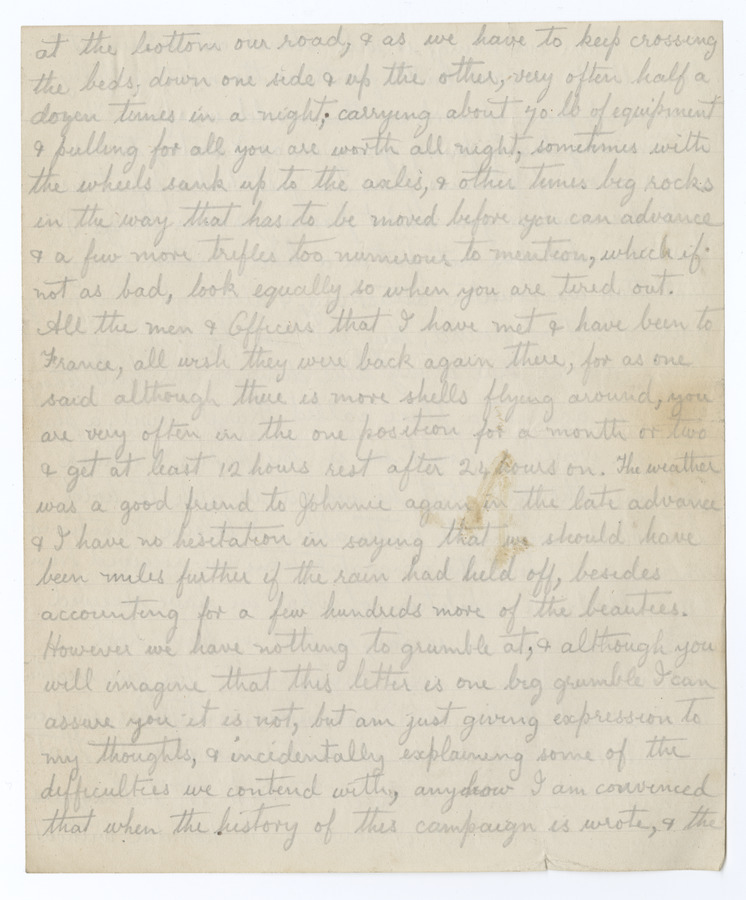 at the bottom our road, & as we have to keep crossing
the beds, down one side & up the other, very often half a
dozen times in a night, carrying about 70 lb of equipment
& pulling for all you are worth all night, sometimes with
the wheels sunk up to the axles, & other times big rocks
in the way that has to be moved before you can advance
& a few more trifles too numerous to mention, which if
not as bad, look equally so when you are tired out.
All the men & Officers that I have met & have been to
France, all wish they were back again there, for as one
said although there is more shells flying around, you
are very often in the one position for a month or two
& get at least 12 hours rest after 24 hours on. The weather
was a good friend to Johnnie again in the late advance
& I have no hesitation in saying that we should have
been miles further if the rain had held off, besides
accounting for a few hundreds more of the beauties.
However we have nothing to grumble at, & although you
will imagine that this letter is one big grumble I can
assure you it is not, but am just giving expression to
my thoughts, & incidentally explaining some of the
difficulties we contend with, anyhow I am convinced
that when the history of this campaign is wrote, & the